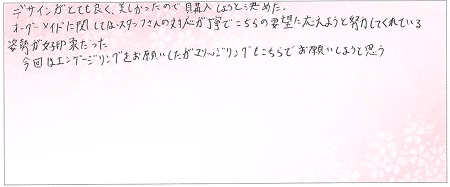 デザインがとても良く、美しかったので購入しようと決めた。
オーダーメイドに関してはスタッフさんの対応が丁寧でこちらの要望に応えようと努力してくれている
姿勢が好印象だった
今回はエンゲージリングをお願いしたがマリッジリングもこちらでお願いしようと思う